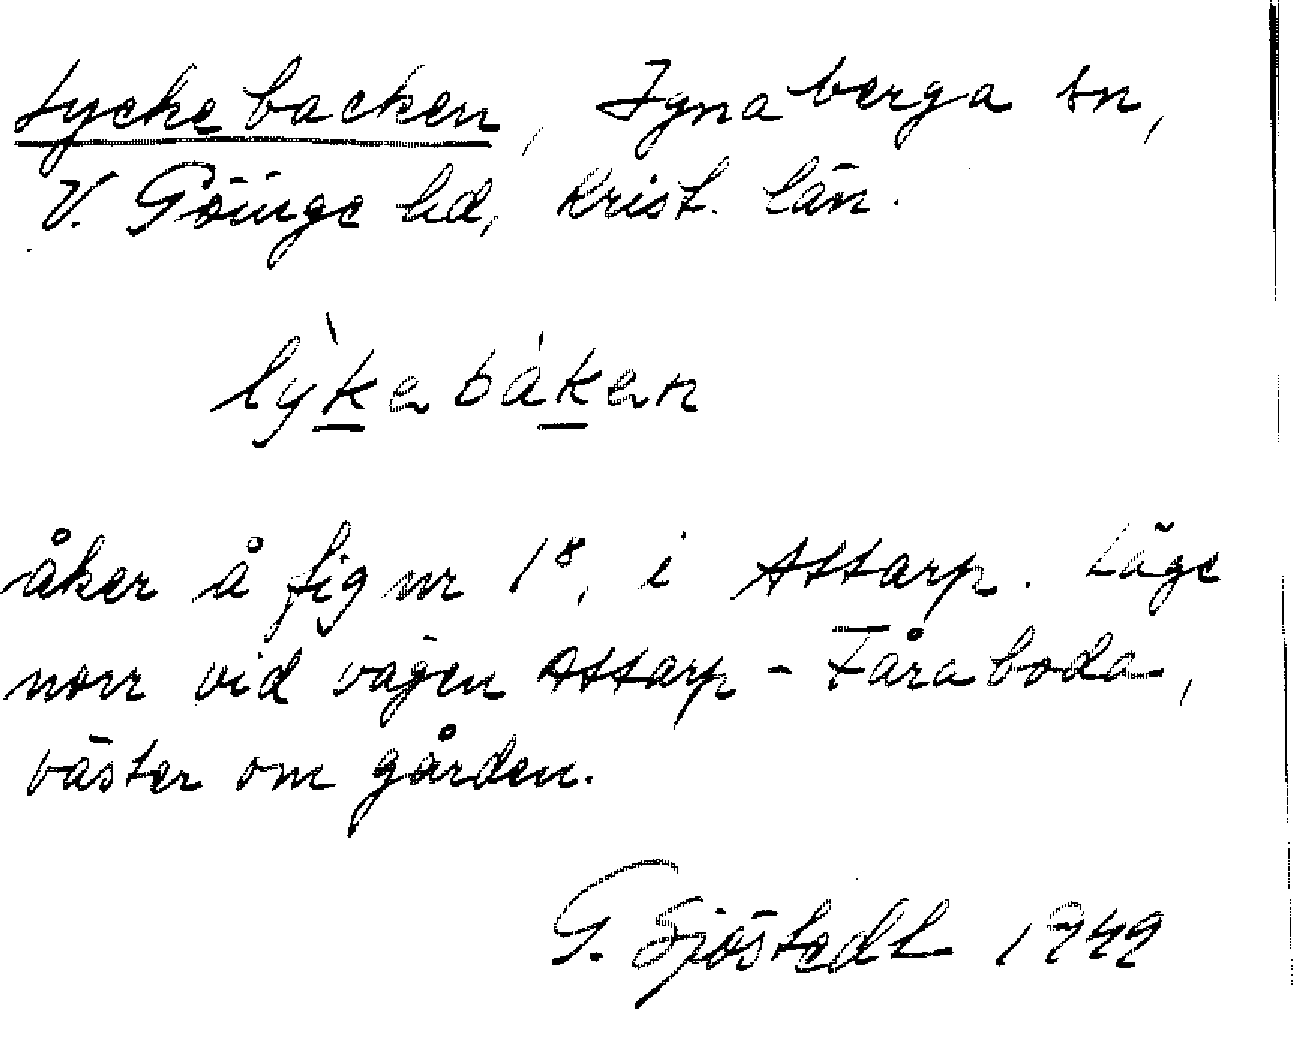 Lyckebacken, Ignaberga sn,
V. Göinge hd, Krist. län.
lỳkebáken
åker å fig nr 1⁸, i Attarp. Läge
norr vid vägen Attarp - Fåraboda,
väster om gården.
G. Sjöstedt 1949